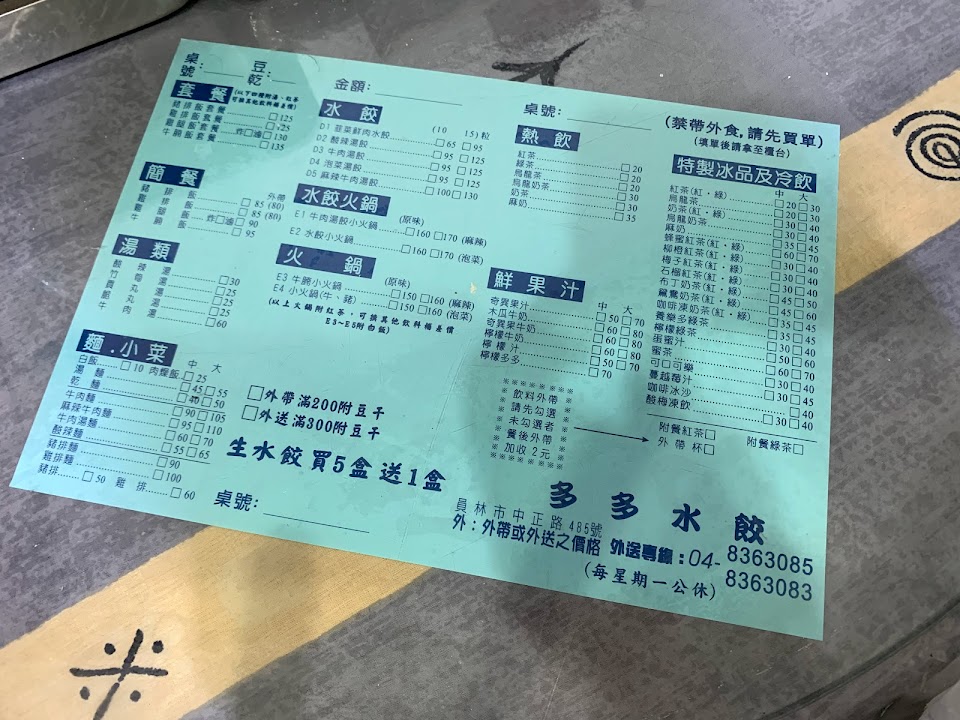 桌號:
豆乾:
金額:
桌號:
(禁帶外食,請先買單)
(填單後請拿至櫃台)
套餐
可換其他飲料補差價)
豬排飯套餐 □125
雞腿飯套餐 炸□滷□130
牛腩飯套餐 □135
簡餐
外帶
豬排飯 □85 (80)
雞排飯 □85 (80)
雞腿飯 炸□滷□90
牛腩飯 □95
湯類
酸辣湯 □30
□25
貢丸湯
牛肉湯 □60
麵.小菜
中 大
白飯 □10 肉燥飯 □25
湯麵 □45 □55
乾麵 □40 □50
牛肉麵 □90 □105
麻辣牛肉麵 □95 □110
牛肉湯麵 □60 □70
酸辣麵 □55 □65
豬排麵 □90
雞排麵 □100
豬排 □50 雞排 □60
水餃
(10 15)粒
D1 韭菜鮮肉水餃 □65 □95
D2 酸辣湯餃 □95 □125
D3 牛肉湯餃 □95 □125
D4 泡菜湯餃 □95 □125
D5 麻辣牛肉湯餃 □100 □130
水餃火鍋
E1 牛肉湯餃小火鍋 (原味) □160 □170 (麻辣)
E2 水餃小火鍋 □160 □170 (泡菜)
火鍋
E3 牛腩小火鍋 (原味) □150 □160 (麻辣)
E4 小火鍋(牛、豬) □150 □160 (泡菜)
(以上火鍋附紅茶,可換其他飲料補差價
E3~E5附白飯)
□外帶滿200附豆干
□外送滿300附豆干
生水餃買5盒送1盒
桌號:
熱飲
紅茶 □20
綠茶 □20
烏龍茶 □20
烏龍奶茶 □30
奶茶 □30
麻奶 □35
鮮果汁
中 大
奇異果汁 □50 □70
木瓜牛奶 □60 □80
奇異果牛奶 □60 □80
檸檬牛奶 □60 □80
檸檬汁 □50 □70
檸檬多多 □70
※※※※※※※※
※ 飲料外帶 ※
※ 請先勾選 ※
※ 未勾選者 ※
※ 餐後外帶 ※
※ 加收2元 ※
※※※※※※※※
特製冰品及冷飲
中 大
紅茶(紅‧綠) □20 □30
烏龍茶
奶茶(紅‧綠)
烏龍奶茶
麻奶
蜂蜜紅茶(紅‧綠)
柳橙紅茶(紅‧綠)
梅子紅茶(紅‧綠)
石榴紅茶(紅‧綠)
布丁奶茶(紅‧綠)
鴛鴦奶茶(紅‧綠)
咖啡凍奶茶(紅‧綠)
養樂多綠茶
檸檬綠茶
蛋蜜汁
蜜茶
可口可樂
蔓越莓汁
咖啡冰沙
酸梅凍飲
附餐紅茶□ 附餐綠茶□
外帶杯□
多多水餃
員林市中正路485號
外:外帶或外送之價格
外送專線:04-8363085
8363083
(每星期一公休)